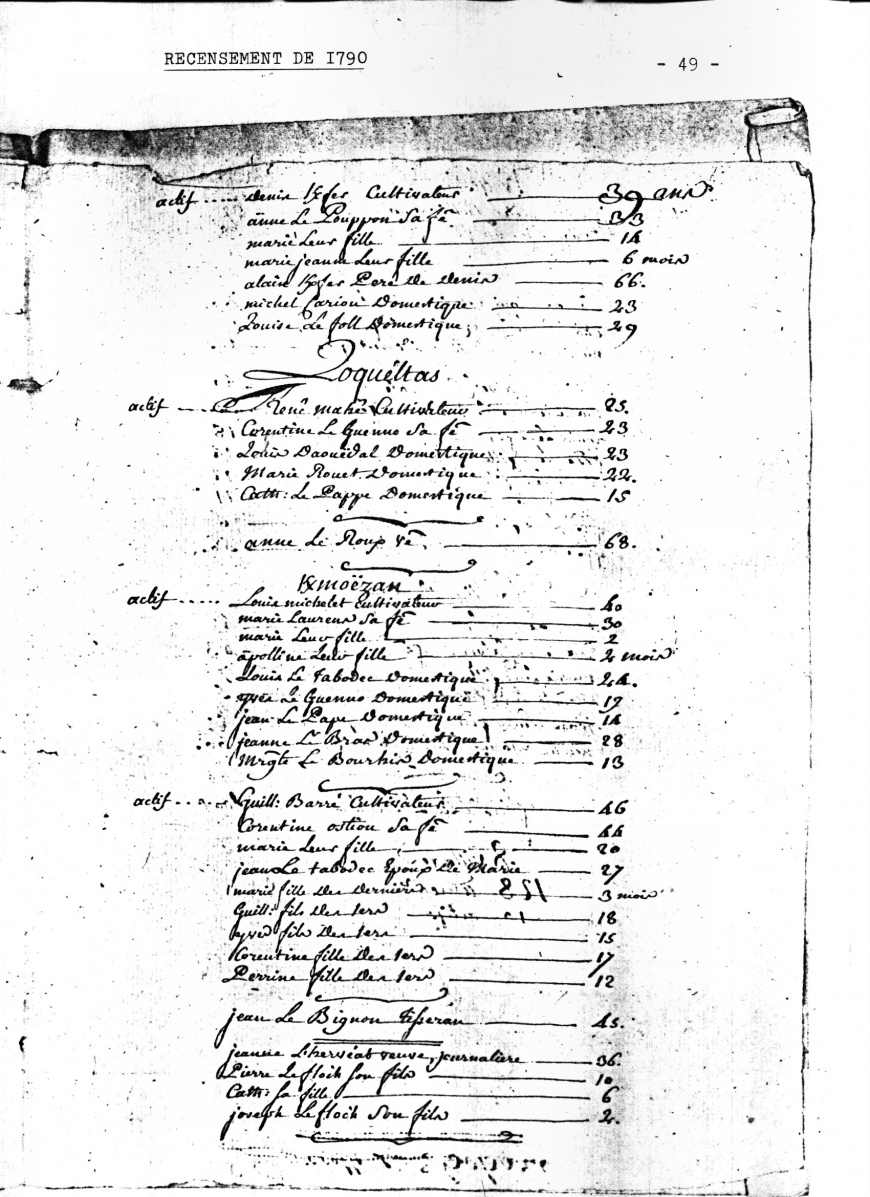 RECENSEMENT DE 1790
- 49 -
actif ..... Denis K/fer Cultivateur 39 ans
anne Le Pouppon Sa fe 33
marie Leur fille 14
marie jeanne Leur fille 6 mois
alain K/fer Pere De Denis 66.
michel Cariou Domestique 23
Louise Le foll Domestique 29
Loquéltas
actif .... René mahé Cultivateur 25.
Corentine Le Guenno Sa fe 23
Louis Daouëdal Domestique 23
Marie Rouet Domestique 22.
Cath: Le Pappe Domestique 15
anne Le Roux ve 68.
K/moëzan
actif ..... Louis michelet Cultivateur 40
marie Laurens Sa fe 30
marie Leur fille 2
apolline Leur fille 2 mois
Louis Le Tabodec Domestique 24.
yves Le Guenno Domestique 19
jean Le Pape Domestique 14
jeanne Le Bras Domestique 28
Mrgte Le Bourhis Domestique 13
actif .... Guill: Barré Cultivateur 46
Corentine ostiou Sa fe 44
marie Leur fille 20
jean Le tabodec Epoux De Marie 27
marie fille Des Derniers 3 mois
Guill: fils Des 1ers 18
yves fils Des 1ers 15
Corentine fille Des 1ers 17
Perrine fille Des 1ers 12
jean Le Bignon Tisseran 45.
jeanne L'hervéat veuve, journaliere 36.
Pierre Le floch Son fils 10
Cath: Sa fille 6
joseph Le floch Son fils 2.